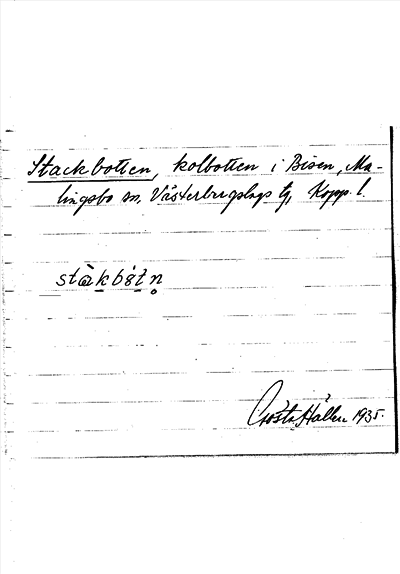 Stackbotten, kolbotten i Bisen, Ma-
lingsbo sn, Västerbergslags tg, Kopp. l.
stàkbòtn̥
Gösta Hallen 1935.